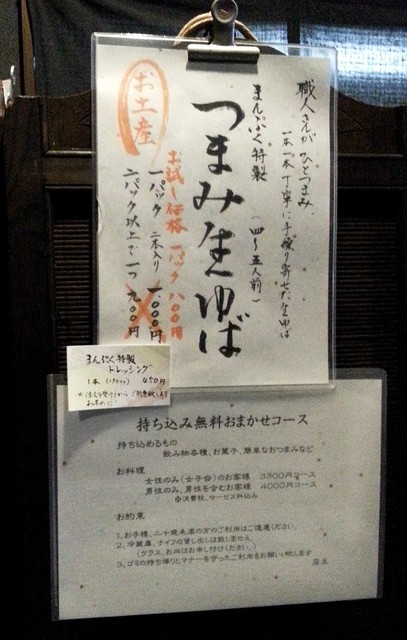 職人さんがひとつまみ
一本一本丁寧に手繰り寄せた生ゆば
まんぷく特製
(四〜五人前)
つまみ生ゆば
お土産
お試し価格 一パック 八〇〇円
一パック 二本入り 一、〇〇〇円
二パック以上で一つ 九〇〇円
まんぷく特製
ドレッシング
1本
450円
持ち込み無料おまかせコース
持ち込めるもの
飲み物各種、お菓子、簡単なおつまみなど
お料理
女性のみ(女子会)のお客様 3300円コース
男性のみ、男性を含むお客様 4000円コース
※消費税、サービス料込み
お約束
1、お子様、二十歳未満の方のご利用はご遠慮ください。
2、冷蔵庫、ナイフの貸し出しは致しません。
(グラス、お皿はお申し付けください。)
3、ゴミの持ち帰りとマナーを守ったご利用をお願い致します
店主